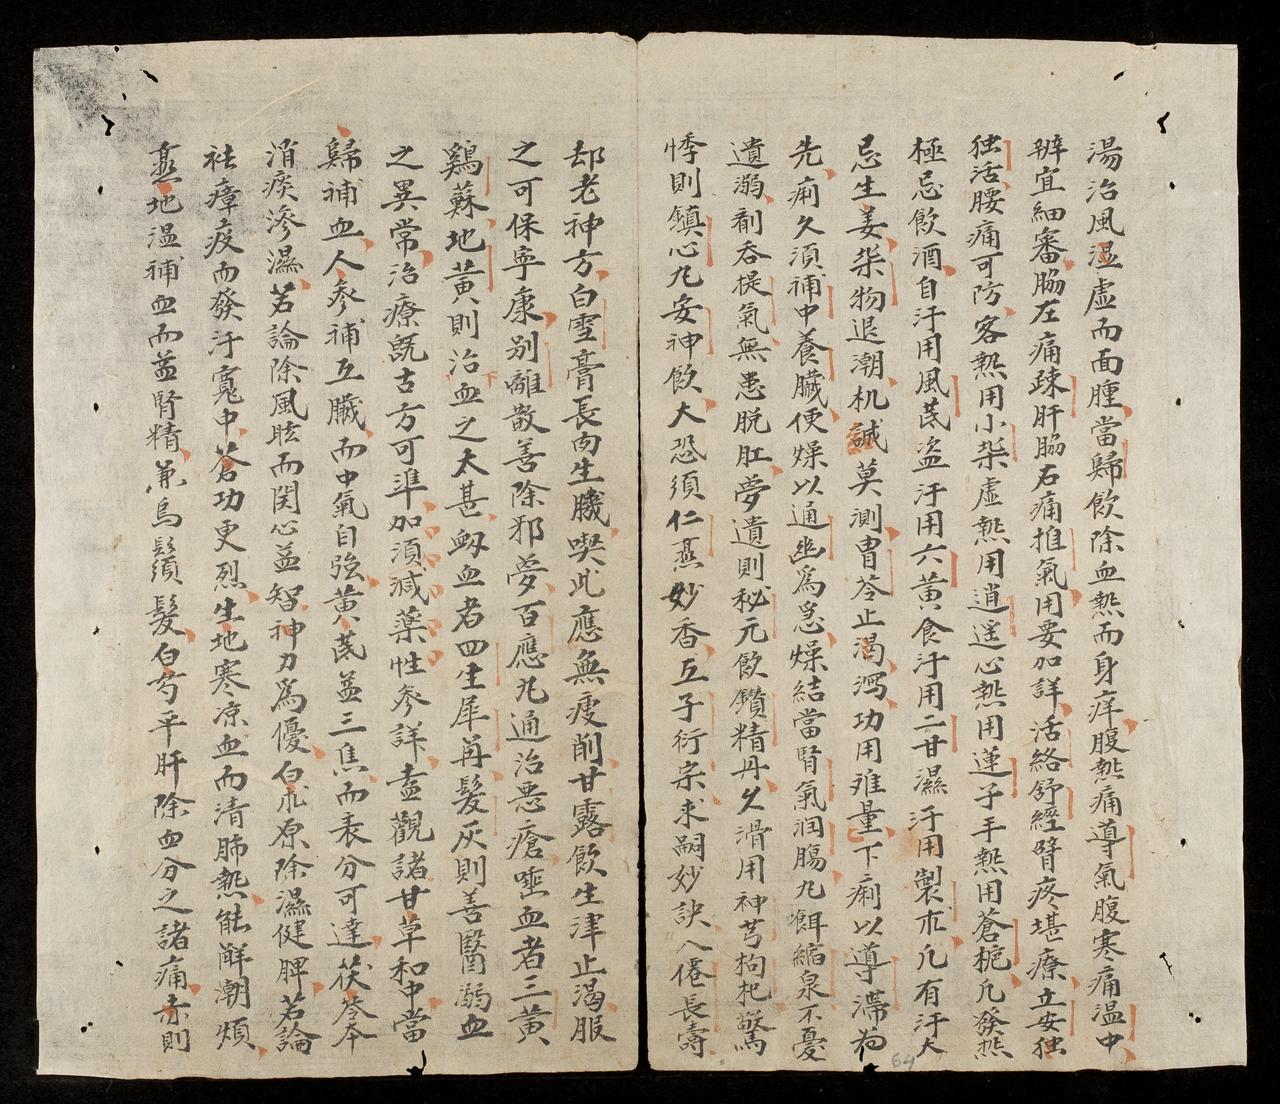 湯治風湿虚而面腫當歸飲除血熱而身痒腹熱痛導氣腹寒痛温中
辨宜細審脇左痛踈肝脇右痛推氣用要加詳活絡舒經臂疼堪療立安独
独活腰痛可防客熱用小柴虚熱用逍遥心熱用蓮子手熱用蒼栀凡發熱
極忌飲酒自汗用風芪盗汗用六黄食汗用二甘濕汗用製朮凡有汗大
忌生姜柴物退潮机誠莫測胄苓止渴瀉功用难量下痢以導滯為
先痢久須補中養臟便燥以通幽爲急燥結當腎氣润腸丸餌縮泉不憂
遺溺剤吞提氣無患脱肛夢遺則秘元飲鎖精丹久滑用神芎拘杞驚
悸則鎮心丸安神飲大恐須仁熹妙香五子衍宗求嗣妙訣八僊長壽
却老神方白雪膏長肉生臓喫此應無疲削甘露飲生津止渴服
之可保寧康别離散善除邪夢百應丸通治悪瘡唾血者三黄
鷄蘇地黄則治血之太甚衂血者四生犀角髮灰則善醫溺血
之異常治療旣古方可準加須減藥性參詳盍觀諸甘草和中當
歸補血人參補五臟而中氣自強黄芪益三焦而表分可達茯苓本
消痰滲濕若論除風眩而関心益智神力爲優白朮原除濕健脾若論
祛瘴疫而發汗寬中蒼功更烈生地寒凉血而清肺熱能解潮煩
熹地温補血而益腎精兼烏鬚髮白芍平肝除血分之諸痛赤則
64